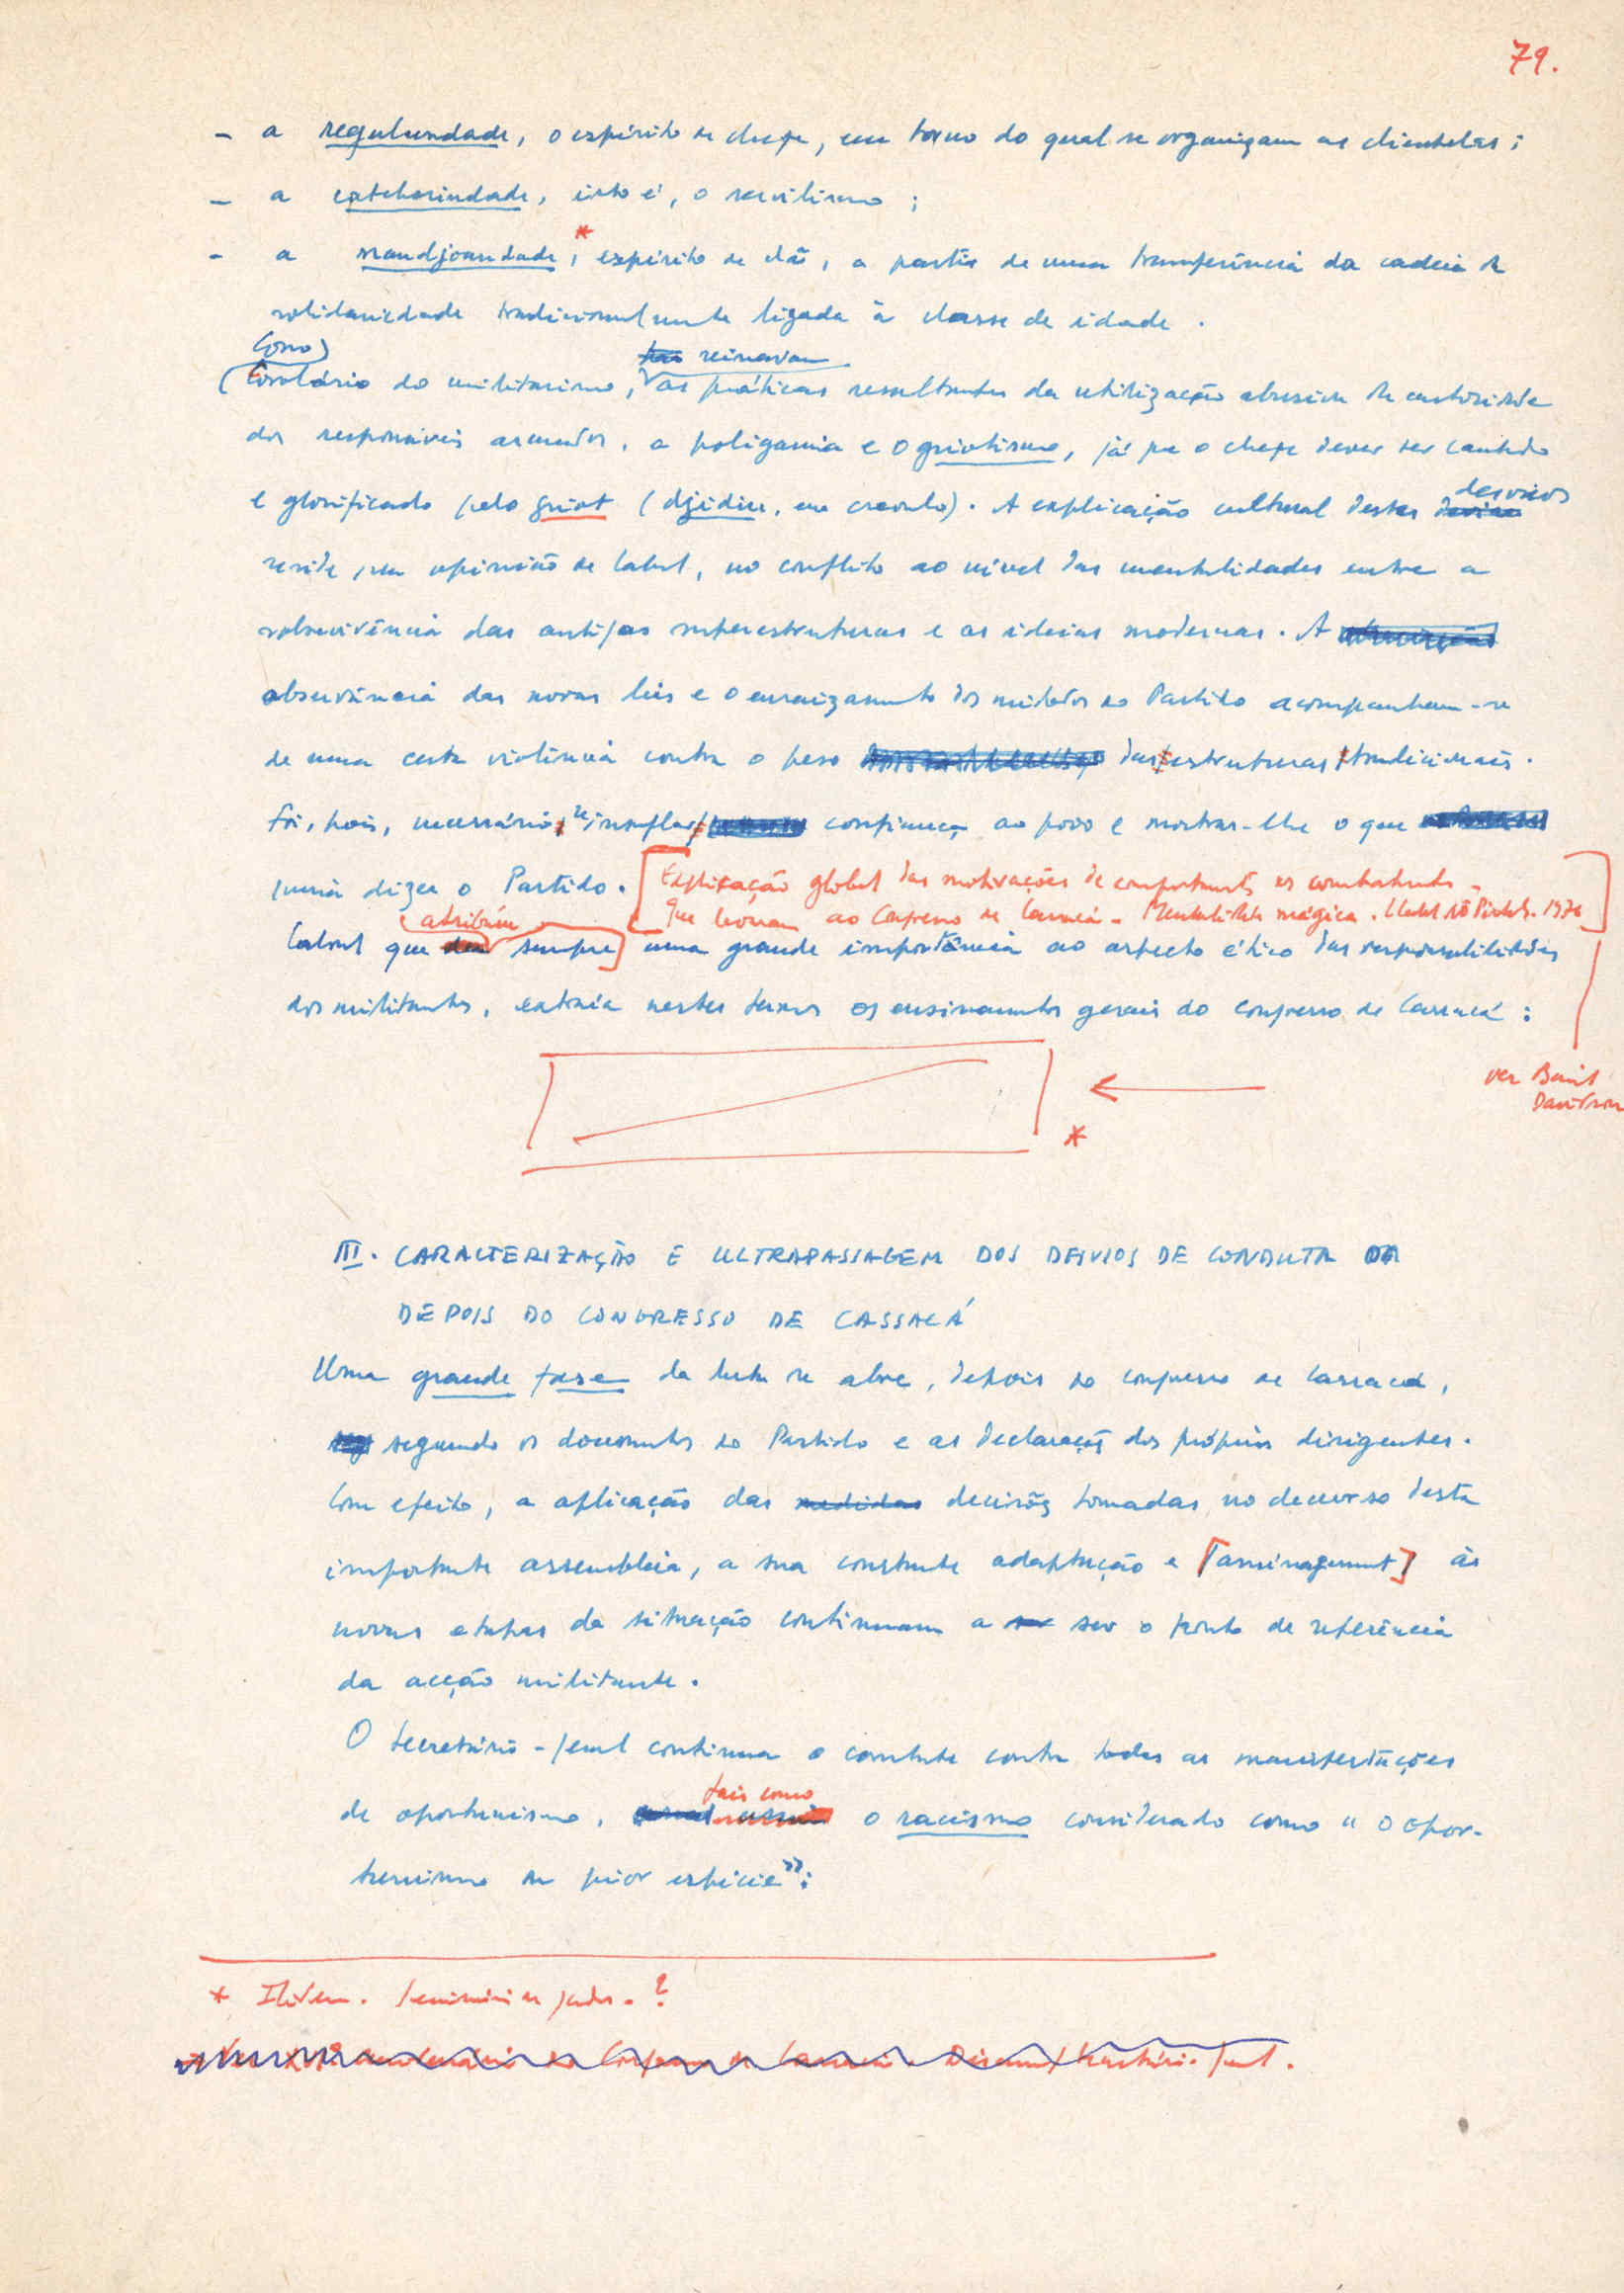 79.
- a regulundade, o espírito de chefe, em torno do qual se organizam as clientelas;
- a catchorindade, isto é, o servilismo;
- a mandjoandade,* espírito de clã, a partir de uma transferência da cadeia de
solidariedade tradicionalmente ligada à classe de idade.
Como
reinavam
(Corolário do militarismo, as práticas resultantes da utilização abusiva da autoridade
dos responsáveis armados, a poligamia e o griotismo, já que o chefe dever ser cantado
desvios
e glorificado pelo griot (djidiu, em crioulo). A explicação cultural destes
reside, na opinião de Cabral, no conflito ao nível das mentalidades entre a
sobrevivência das antigas superestruturas e as ideias modernas. A
observância das novas leis e o enraizamento dos métodos do Partido acompanham-se
de uma certa violência contra o peso das estruturas tradicionais.
Foi, pois, necessário insuflar confiança ao povo e mostrar-lhe o que
queria dizer o Partido. [Explicação global das motivações de comportamento dos combatentes
que levaram ao Congresso de Cassacá. Mentalidade mágica. 1976]
atribuíu
Cabral que sempre] uma grande importância ao aspecto ético das responsabilidades
dos militantes, extraía nestes termos os ensinamentos gerais do congresso de Cassacá:
ver Basil
Davidson
*
III. CARACTERIZAÇÃO E ULTRAPASSAGEM DOS DESVIOS DE CONDUTA
DEPOIS DO CONGRESSO DE CASSACÁ
Uma grande fase da luta se abre, depois do congresso de Cassacá,
segundo os documentos do Partido e as declarações dos próprios dirigentes.
Com efeito, a aplicação das medidas decisões tomadas no decurso desta
importante assembleia, a sua constante adaptação e [aménagement] às
novas etapas da situação continuam a ser o ponto de referência
da acção militante.
O Secretário-geral continua o combate contra todas as manifestações
tais como
de oportunismo, o racismo considerado como "o opor-
tunismo da pior espécie":
* Ibidem. Seminário de quadros. ?